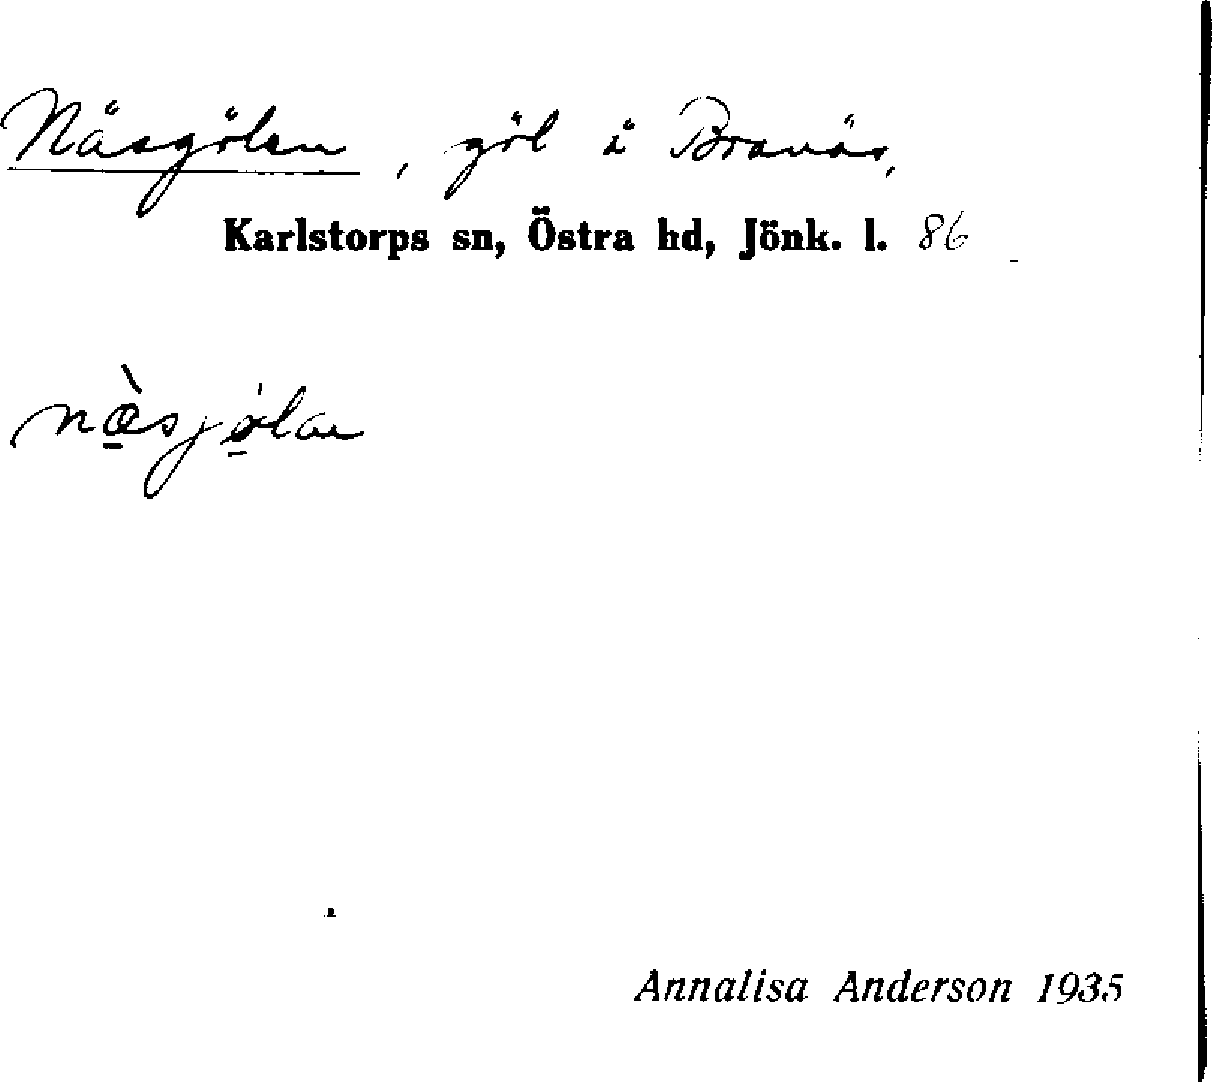 Näsgölen, göl i Bravås,
Karlstorps sn, Östra hd, Jönk. l. 86
næ̠̀sjǿ̠lan
Annalisa Anderson 1935